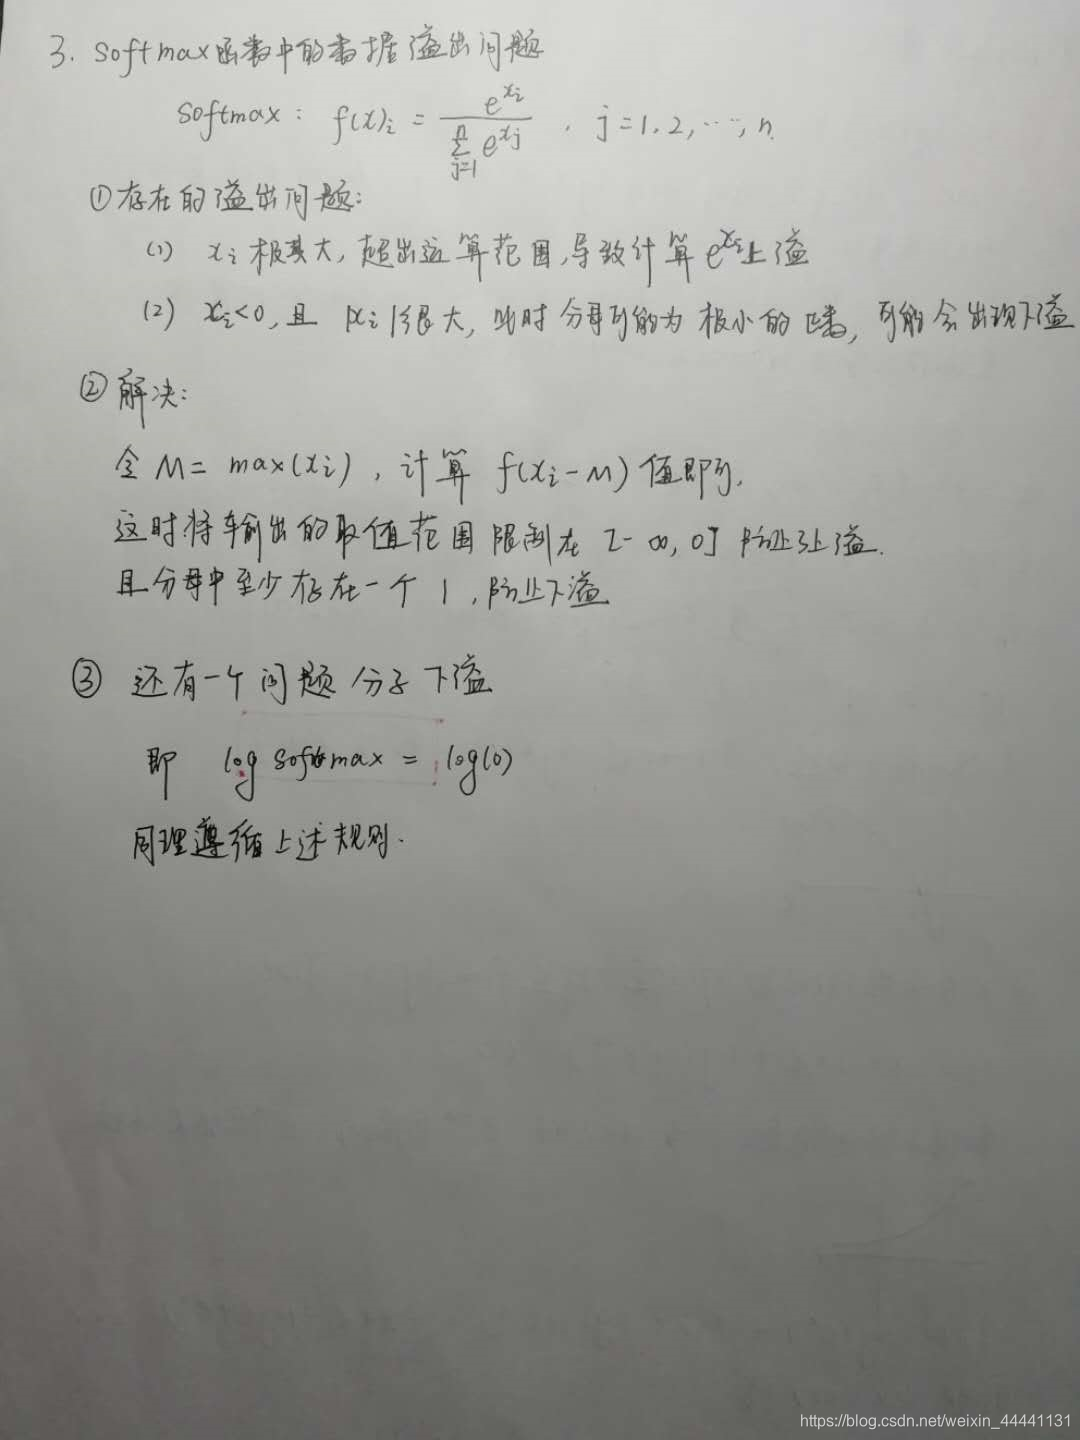 3. softmax函数中的数据溢出问题
Softmax: f(x)i = e^xi / Σ(j=1, n) e^xj , j=1,2,…,n.
①存在的溢出问题:
(1) xi 极其大, 超出运算范围,导致计算 e^xi上溢
(2) xi<0,且 |xi|很大, 此时分母可能为极小的正数, 可能会出现下溢
②解决:
令 M= max(xi), 计算 f(xi-M) 值即可.
这时将输出的取值范围限制在 [-∞,0] 防止上溢.
且分母中至少存在一个 1, 防止下溢
③ 还有一个问题分子下溢
即 log softmax = log(0)
同理遵循上述规则.
https://blog.csdn.net/weixin_44441131